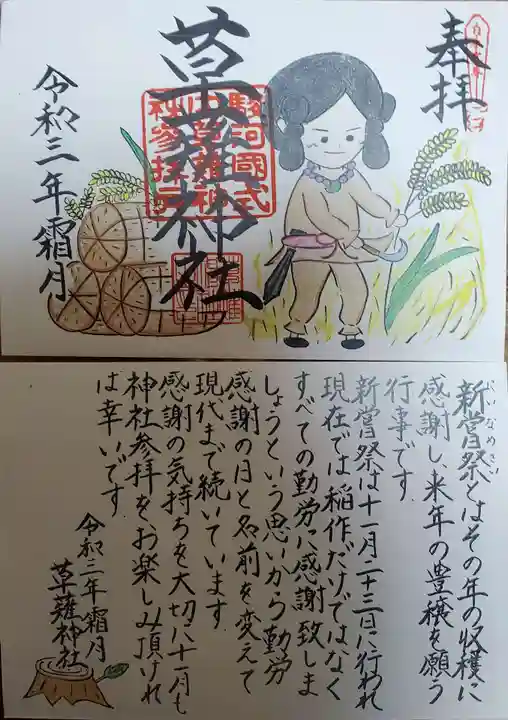 奉拝
草薙神社
駿河國式
内草薙神
社参拝章
令和三年霜月
新嘗祭とはその年の収穫に
にいなめさい
感謝し、来年の豊穣を願う
行事です。
新嘗祭は十一月二十三日に行われ
現在では稲作だけではなく
すべての勤労に感謝致しま
しょうという思いから勤労
感謝の月と名前を変えて
現代まで続いています。
感謝の気持ちを大切に十一月も
神社参拝をお楽しみ頂けれ
は幸いです。
令和三年霜月
草薙神社